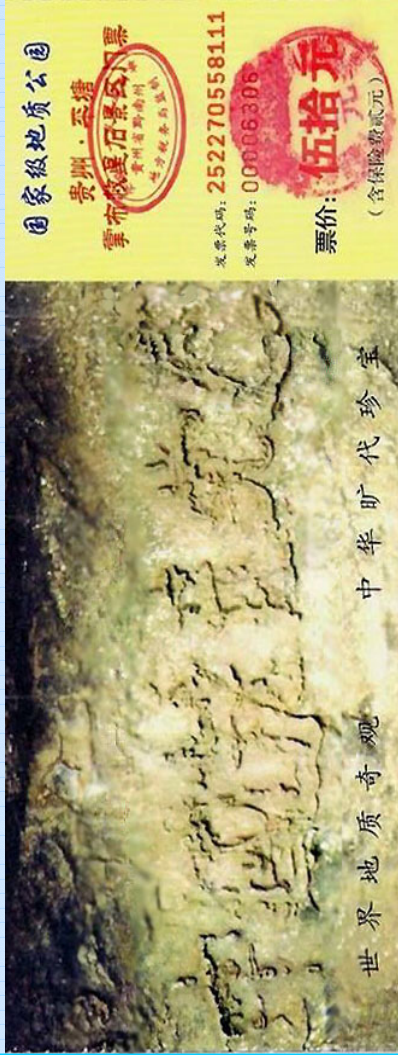 国家级地质公园
贵州·平塘
掌布救星石景区门票
贵州省黔南州
地方税务局监制
发票代码: 252270558111
发票号码: 00006306
票价: 伍拾元
(含保险费贰元)
世界地质奇观 中华旷代珍宝